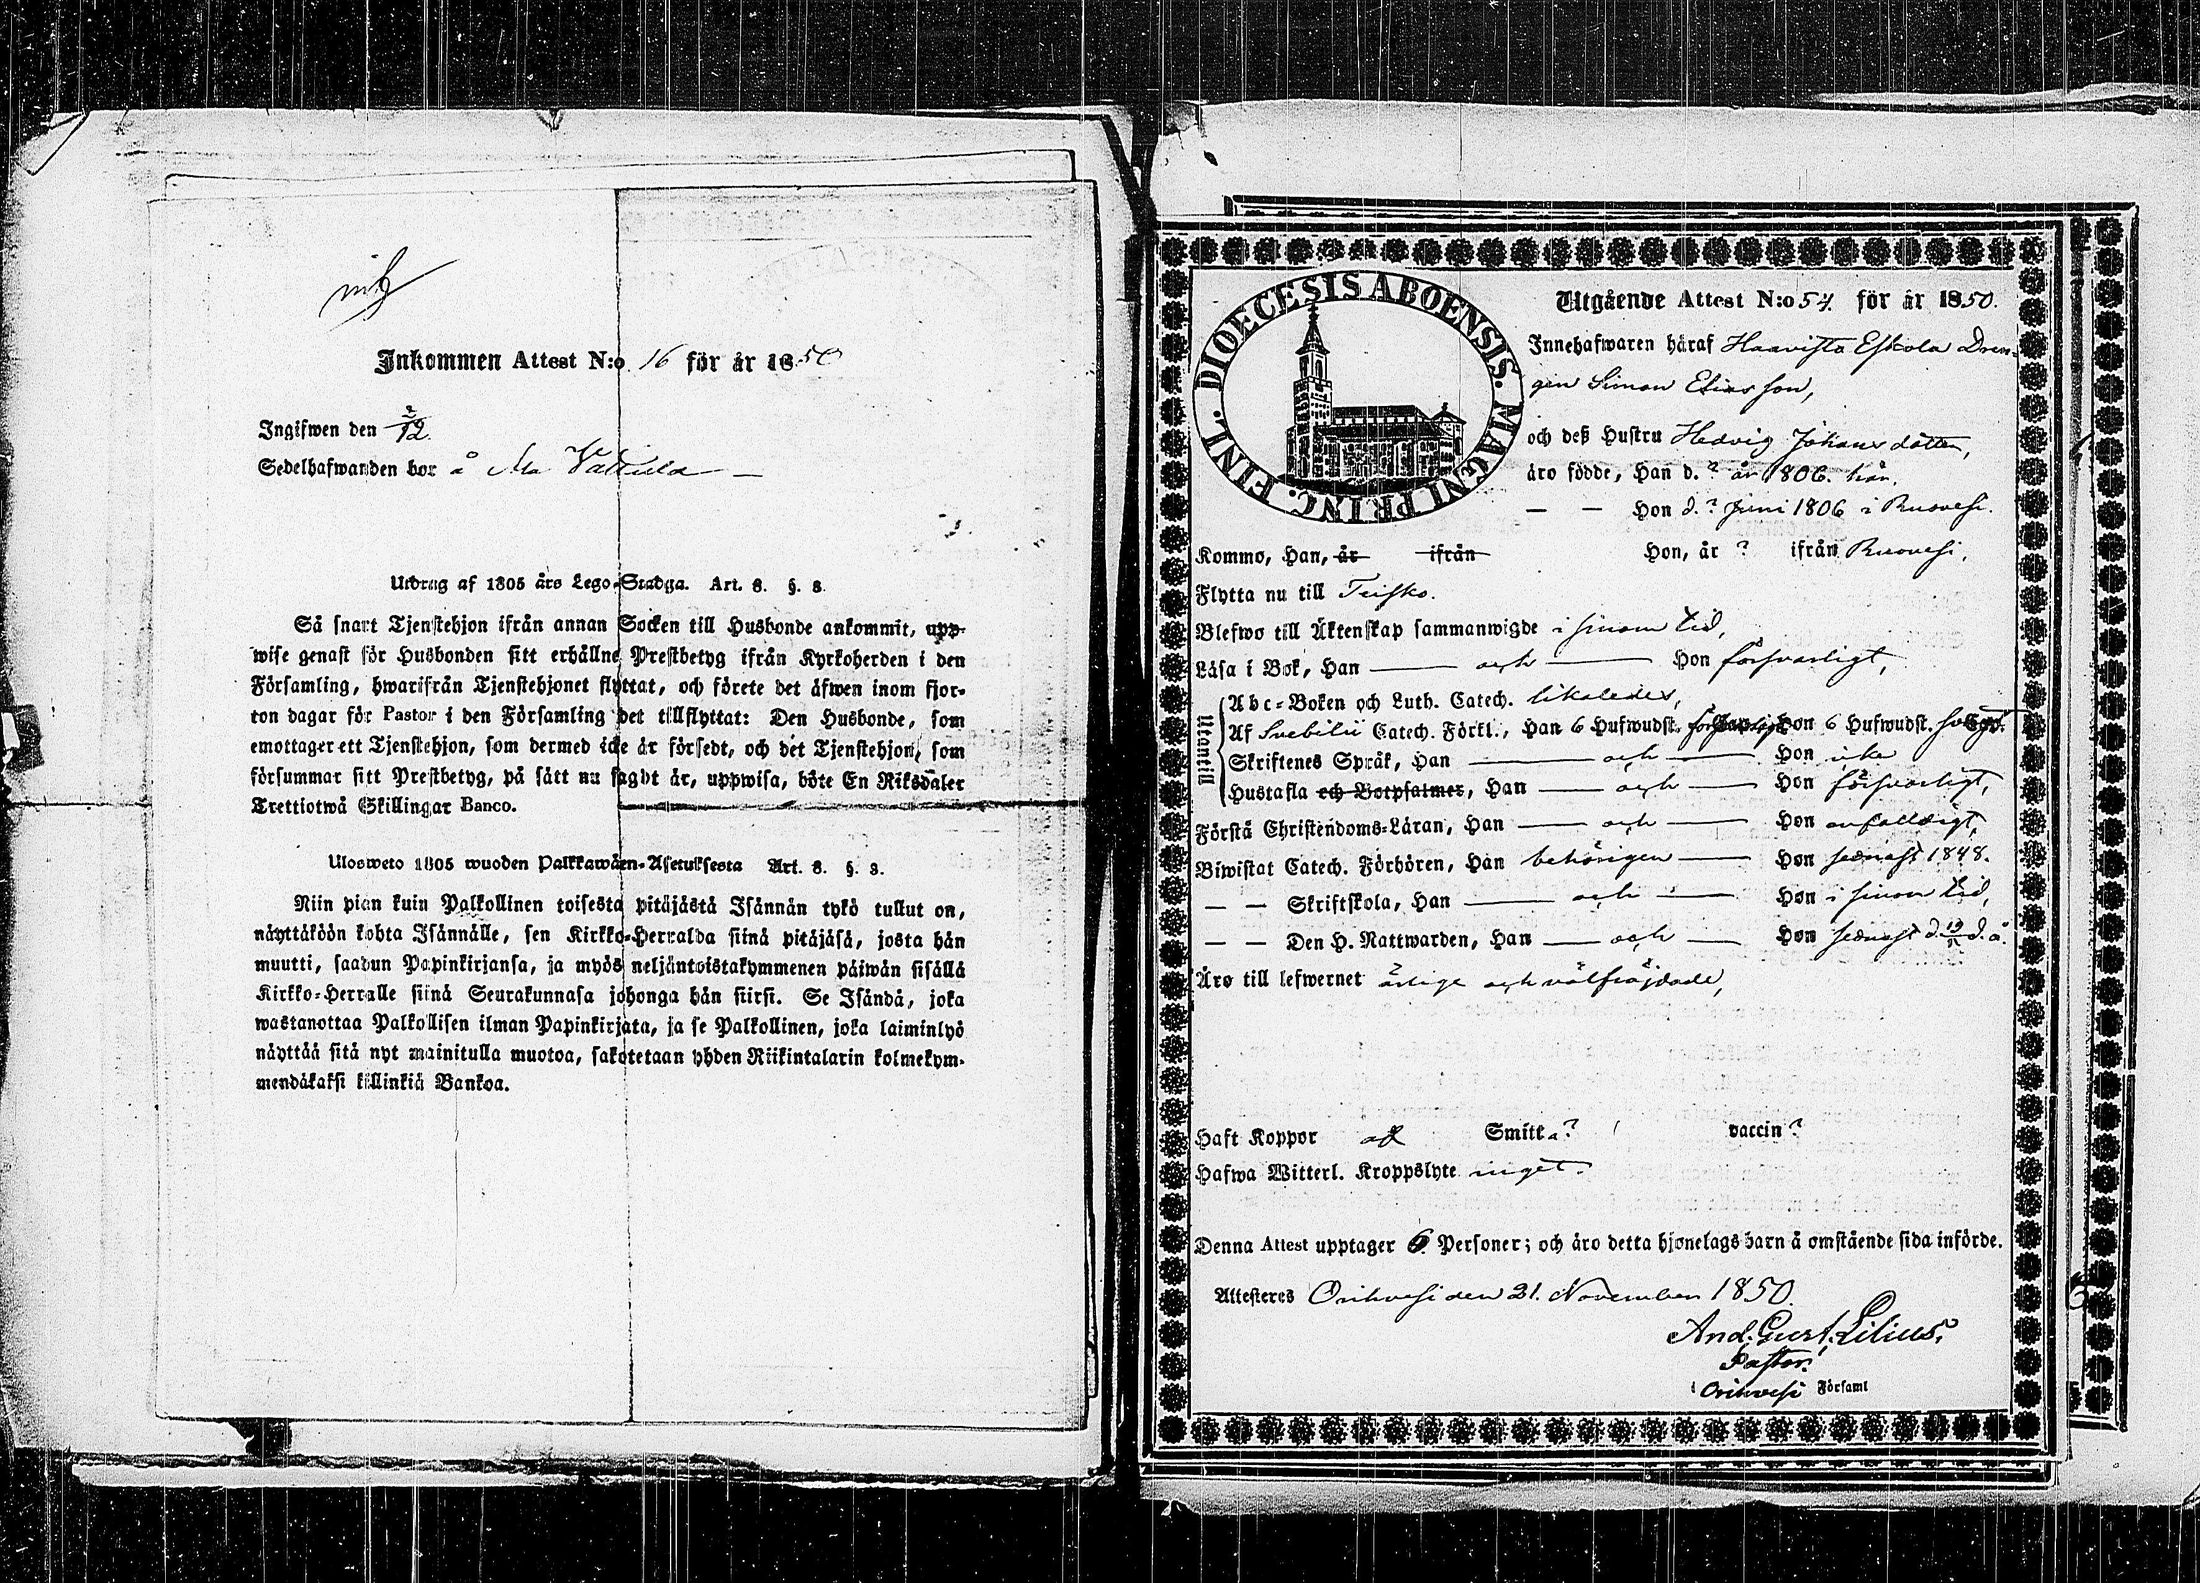 Inkommen Attest N:o 16 för år 1850
Ingifwen den 2/12.
Sedelhafwanden bor å
Utdrag af 1805 års Lego-Stadga. Art. 8. §. 8.
Så snart Tjenstehjon ifrån annan Socken till Husbonde ankommit, upp-
wise genast för Husbonden sitt erhållne Prestbetyg ifrån Kyrkoherden i den
Församling, hwarifrån Tjenstehjonet flyttat, och förete det äfwen inom fjor-
ton dagar för Pastor i den Församling det tillflyttat: Den Husbonde, som
emottager ett Tjenstehjon, som dermed icke är försedt, och det Tjenstehjon, som
försummar sitt Prestbetyg, på sätt nu sagdt är, uppwisa, böte En Riksdaler
Trettiotwå Skillingar Banco.
Ulosweto 1805 wuoden Palkkawäen-Asetuksesta Art. 8. §. 8.
Niin pian kuin Palkollinen toisesta pitäjästä Isännän tykö tullut on,
näyttäköön kohta Isännälle, sen Kirkko-Herralda siinä pitäjäsä, josta hän
muutti, saadun Papinkirjansa, ja myös neljäntoistakymmenen päiwän sisällä
Kirkko-Herralle siinä Seurakunnasa johonga hän siirsi. Se Isändä, joka
wastanottaa Palkollisen ilman Papinkirjata, ja se Palkollinen, joka laiminlyö
näyttää sitä nyt mainitulla muotoa, sakotetaan yhden Riikintalarin kolmekym-
mendäkaksi killinkiä Bankoa.
DIOECESIS ABOENSIS. MAGNI PRINC. FINL.
Utgående Attest N:o 54. för år 1850.
Innehafwaren häraf Haavisto Eskola Dren-
gen Simon Eliasson,
och deß Hustru Hedvig Johansdotter,
äro födde, Han d. ? år 1806. här.
— — Hon d. ? Juni 1806 i Ruovesi.
Kommo, Han, år ifrån Hon, år ? ifrån Ruovesi.
Flytta nu till Teisko.
Blefwo till Äktenskap sammanwigde i sinom tid,
Läsa i Bok, Han — och — Hon försvarligt,
Utantill
Abc-Boken och Luth. Catech. likaledes,
Af Svebilii Catech. Förkl., Han 6 Hufwudst. Hon 6 Hufwudst.
Skriftenes Språk, Han — och — Hon icke
Hustafla och Botpsalmer, Han — och — Hon försvarligt,
Förstå Christendoms-Läran, Han — och — Hon enfaldigt,
Biwistat Catech. Förhören, Han behörigen — Hon sednast 1848.
— — Skriftskola, Han — och — Hon i sinom tid,
— — Den H. Nattwarden, Han — och — Hon sednast d. d. å.
Äro till lefwernet ärlige och välfräjdade,
Haft Koppor Smitta? vaccin?
Hafwa Witterl. Kroppslyte inget.
Denna Attest upptager 6 Personer; och äro detta hjonelags barn å omstående sida införde.
Attesteres Orihvesi den 21. November 1850.
And. Gust. Lilius,
Pastor.
i Orihvesi Församl